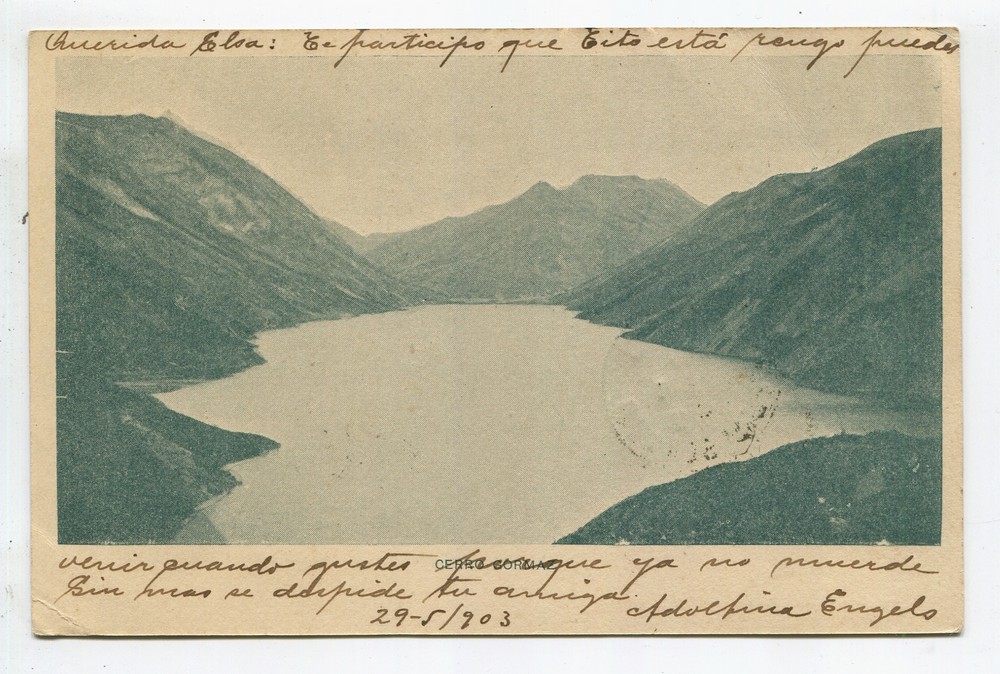 Querida Elsa: Te participo que Tito está rengo puedes
CERRO GORMAZ
venir cuando gustes porque ya no muerde
Sin mas se despide tu amiga.
Adolfina Engels
29-5/903